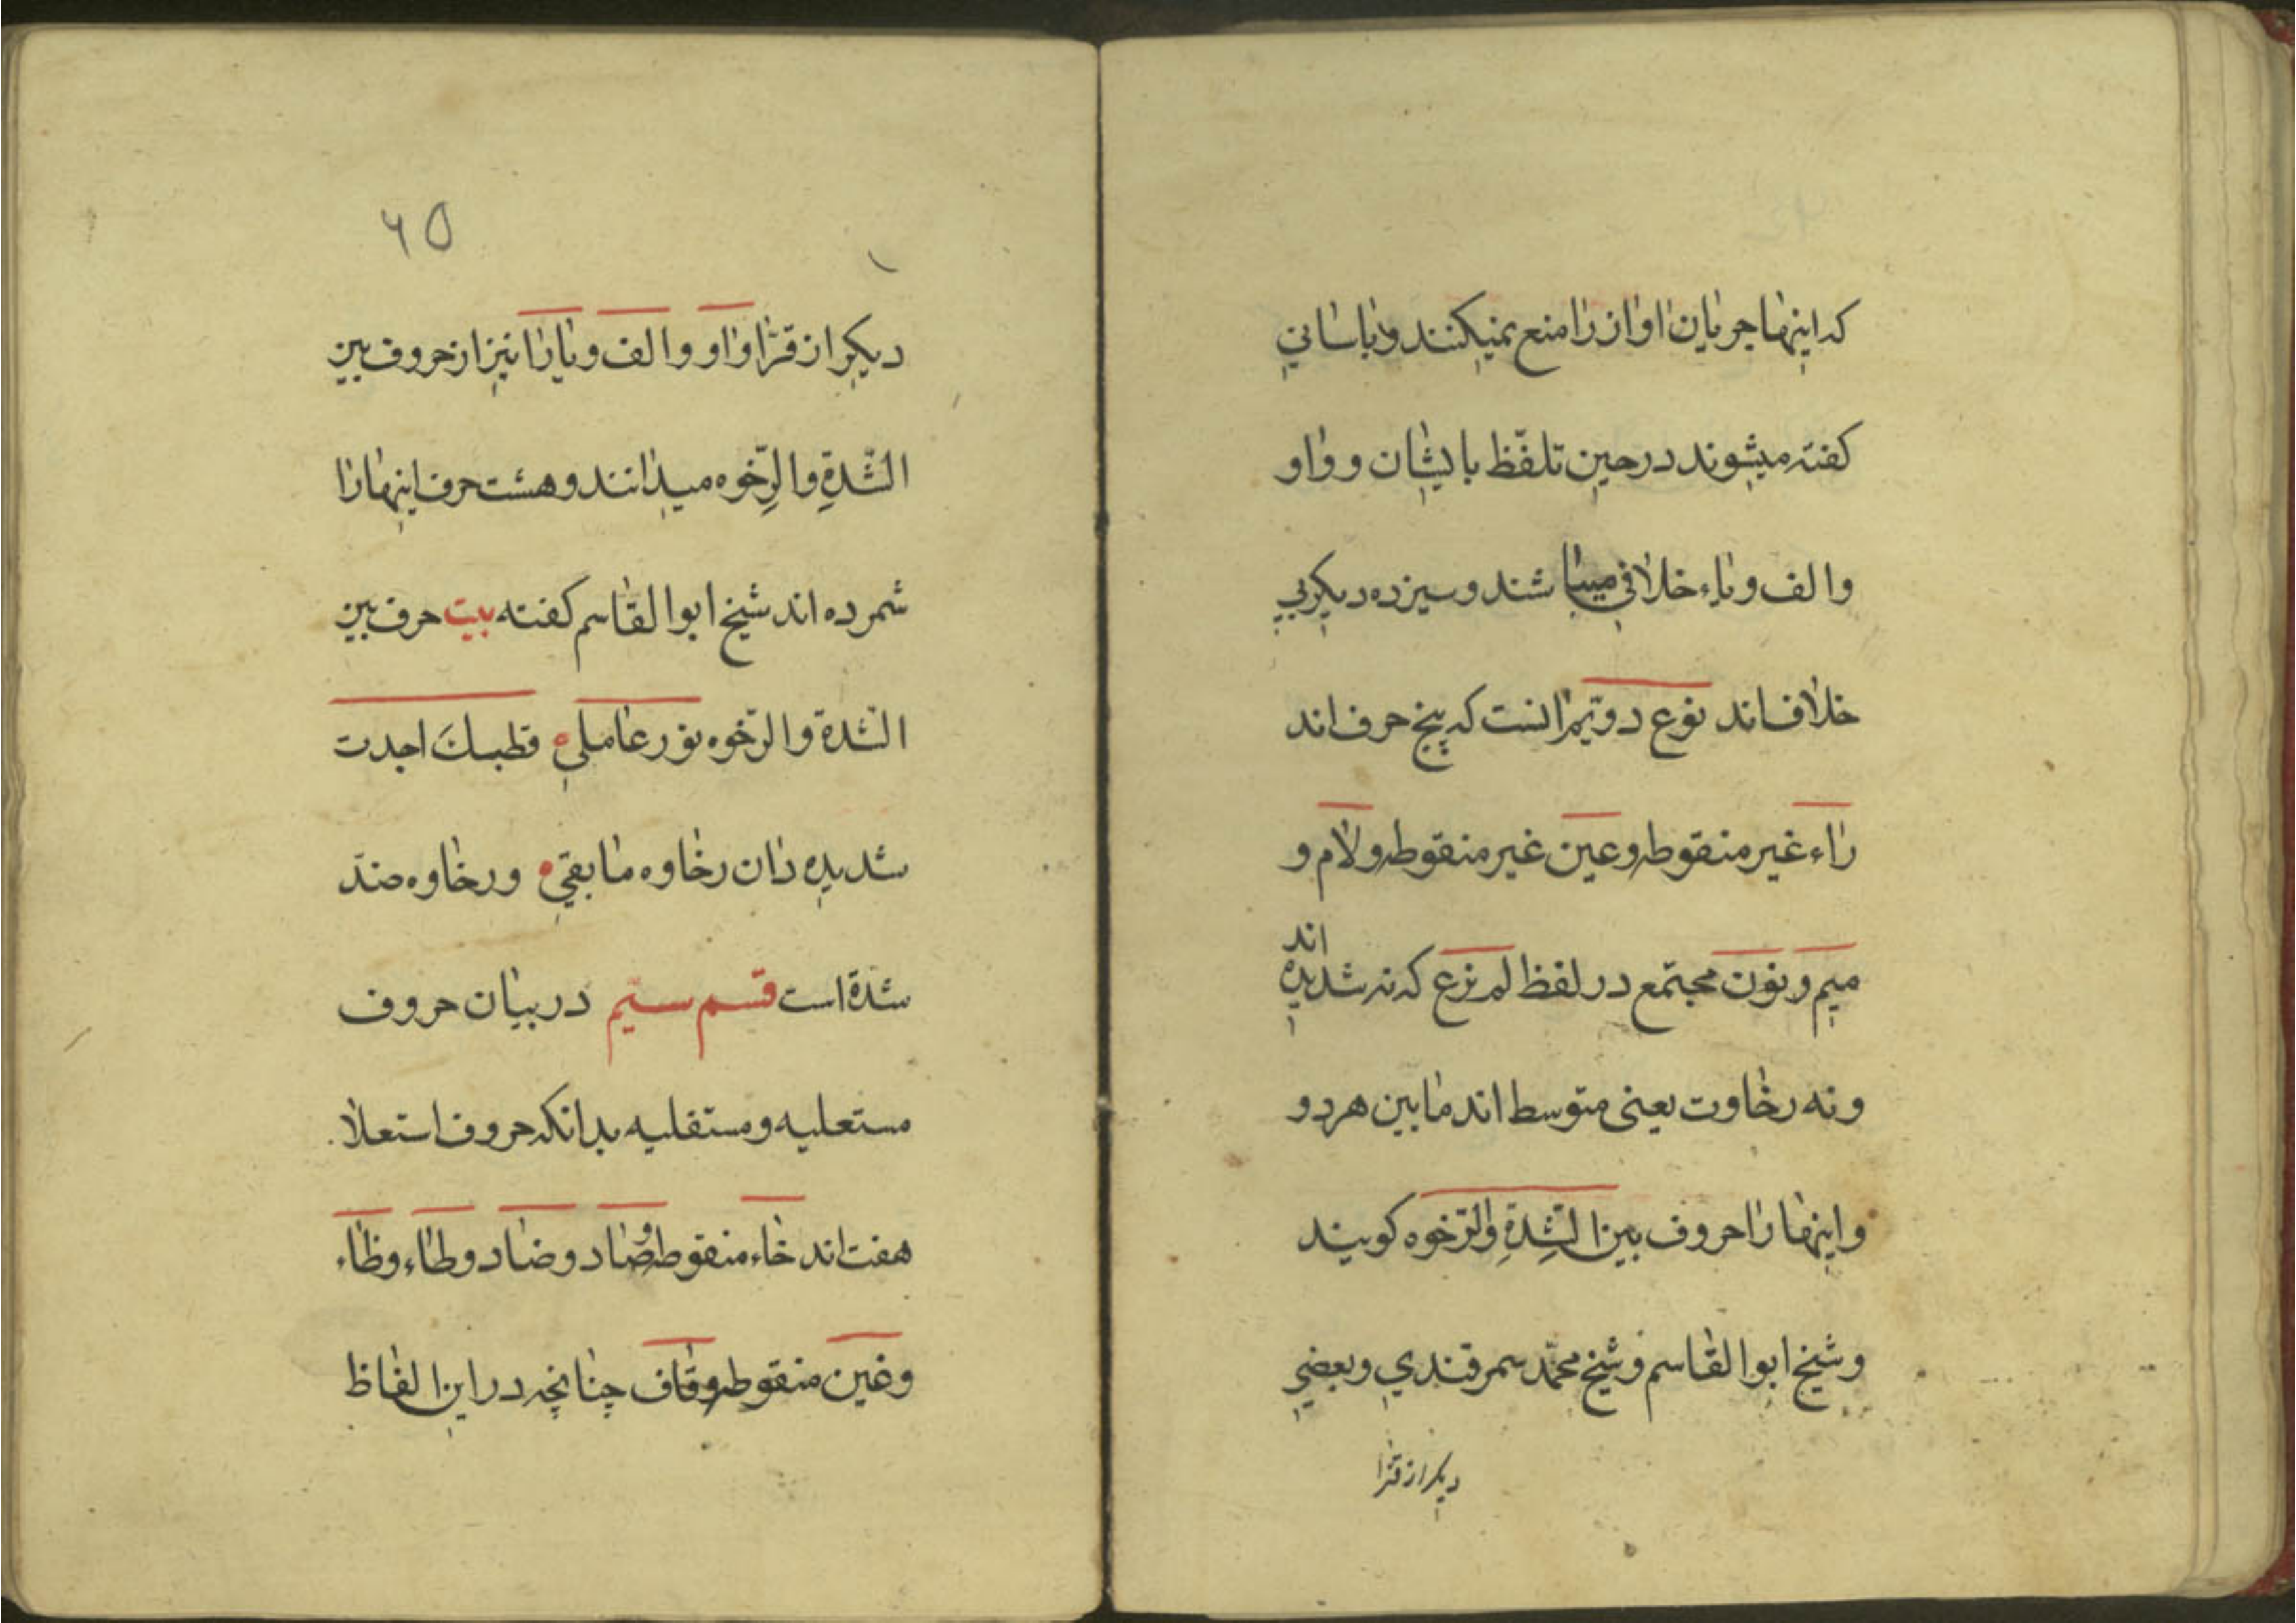 که اینها جریان اواز را منع نمیکنند و باسانی
کفته میشوند در حین تلفّظ بایشان و واو
والف و یاء خلافی میباشند و سیزده دیکر بی
خلاف اند نوع دویّم انست که پنج حرف اند
راء غیر منقوطه و عین غیر منقوطه و لام و
میم و نون مجتمع در لفظ لم نرع که نه شدیده اند
و نه رخاوت یعنی متوسط اند ما بین هر دو
و اینها را حروف بین الشّدةِ والرّخوه کویند
و شیخ ابوالقاسم و شیخ محمّد سمرقندی و بعضی
دیکر از قرّا
۶۵
دیکر از قرّا واو و الف و یا را نیز از حروف بین
الشّدةِ والرِّخوه میدانند و هشت حرف اینها را
شمرده اند شیخ ابوالقاسم کفته بیت حرف بین
الشّدة والرّخوه نور عاملی ه قطبك اجدت
شدیده دان رخاوه ما بقی ه و رخاوه ضدّ
شدة است قسم سیّم در بیان حروف
مستعلیه و مستفلیه بدانکه حروف استعلا
هفت اند خاء منقوطه و صاد و ضاد و طاء و ظاء
و غین منقوطه و قاف چنانچه در این الفاظ